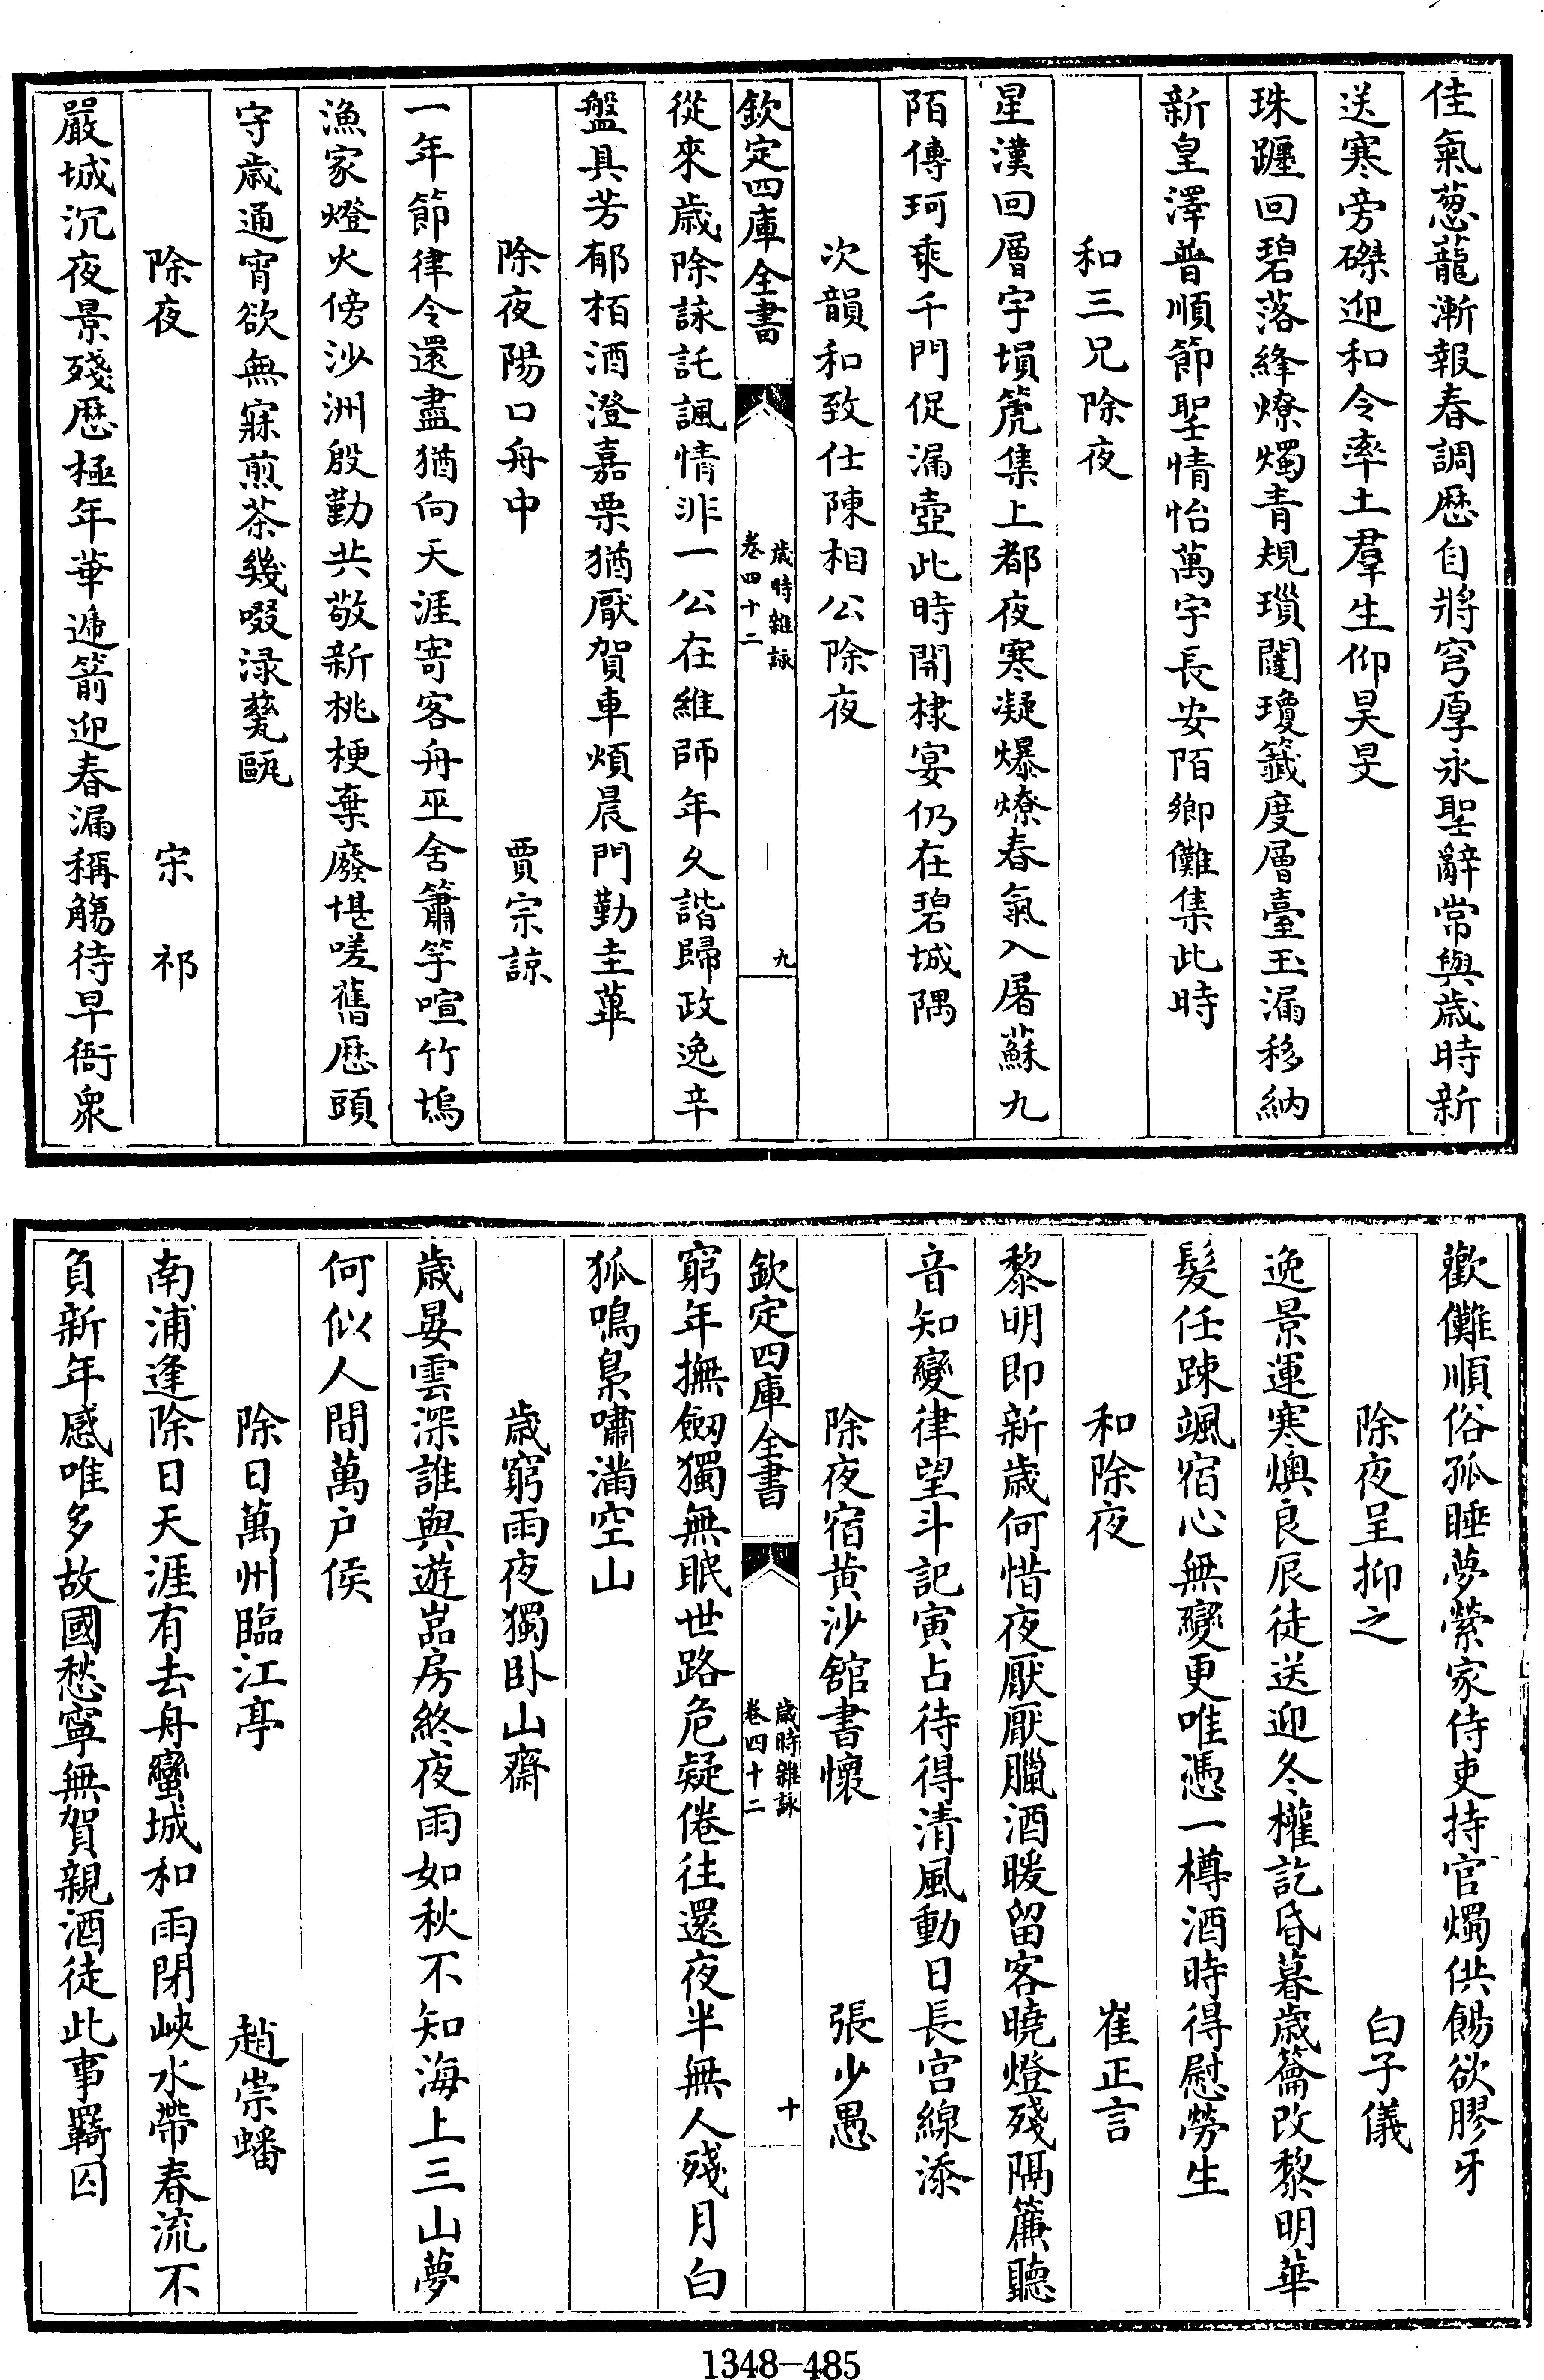 佳氣葱蘢漸報春調厯自將穹厚永聖辭常與歲時新
送寒旁磔迎和令率土羣生仰昊旻
珠躔回碧落絳燎燭青規瑣闥瓊籤度層臺玉漏移納
新皇澤普順節聖情怡萬宇長安陌鄉儺集此時
和三兄除夜
星漢回層宇塤篪集上都夜寒凝爆燎春氣入屠蘇九
陌傳珂乘千門促漏壺此時開棣宴仍在碧城隅
次韻和致仕陳相公除夜
欽定四庫全書
歲時雜詠
卷四十二
九
從來歲除詠託諷情非一公在維師年久諧歸政逸辛
盤具芳郁栢酒澄嘉栗猶厭賀車煩晨門勤圭蓽
除夜陽口舟中 賈宗諒
一年節律令還盡猶向天涯寄客舟巫舍簫竽喧竹塢
漁家燈火傍沙洲殷勤共敬新桃梗棄廢堪嗟舊厯頭
守歲通宵欲無寐煎茶幾啜淥甆甌
除夜 宋祁
嚴城沉夜景殘厯極年華遞箭迎春漏稱觴待早衙衆
歡儺順俗孤睡夢縈家侍吏持官燭供餳欲膠牙
除夜呈抑之 白子儀
逸景運寒燠良辰徒送迎冬權訖昏暮歲籥改黎明華
髮任踈颯宿心無變更唯憑一樽酒時得慰勞生
和除夜 崔正言
黎明即新歲何惜夜厭厭臘酒暖留客曉燈殘隔簾聽
音知變律望斗記寅占待得清風動日長宮線添
除夜宿黄沙舘書懷 張少愚
欽定四庫全書
歲時雜詠
卷四十二
十
窮年撫劒獨無眠世路危疑倦往還夜半無人殘月白
狐鳴梟嘯滿空山
歲窮雨夜獨卧山齋
歲晏雲深誰與遊嵓房終夜雨如秋不知海上三山夢
何似人間萬户侯
除日萬州臨江亭 趙崇蟠
南浦逢除日天涯有去舟蠻城和雨閉峽水帶春流不
負新年感唯多故國愁寧無賀親酒徒此事羇囚
1348-485